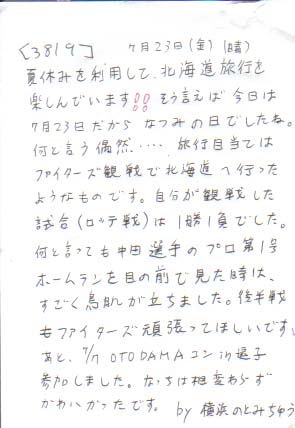 [3819] 7月23日(金)晴
夏休みを利用して、北海道旅行を
楽しんでいます!! そう言えば今日は
7月23日だから なつみの日でしたね。
何と言う偶然‥‥ 旅行目当ては
ファイターズ観戦で北海道へ行った
ようなものです。自分が観戦した
試合(ロッテ戦)は1勝1負でした。
何と言っても中田選手のプロ第1号
ホームランを目の前で見た時は、
すごく鳥肌が立ちました。後半戦
もファイターズ頑張ってほしいです。
あと、7/7 OTODAMAコン in 逗子
参加しました。なっちは相変わらず
かわいかったです。 by 横浜のとみちゅう